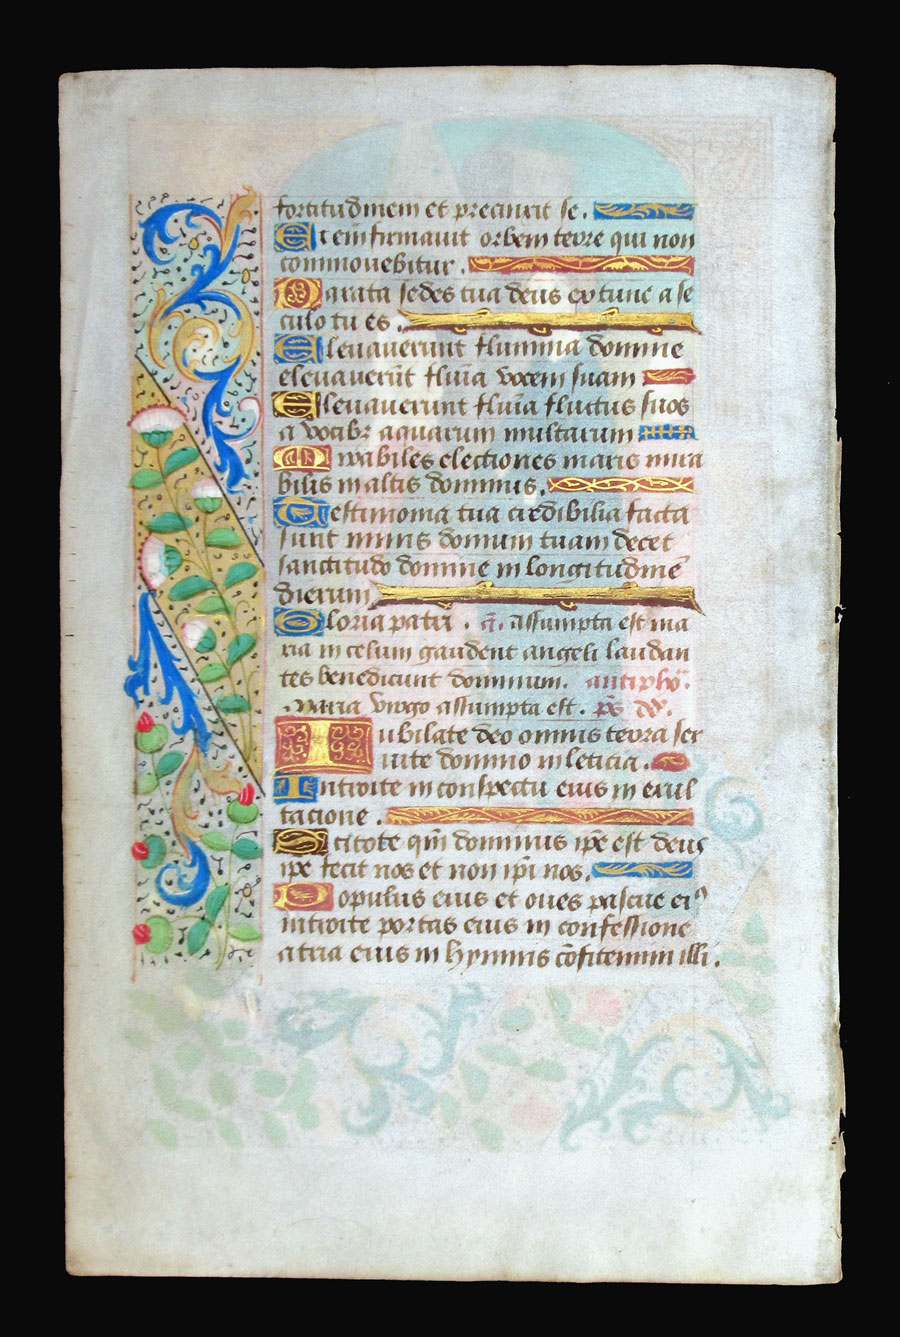 fortitudinem et precinxit se.
Etenim firmavit orbem terre qui non
commovebitur.
Parata sedes tua deus ex tunc a se
culo tu es.
Elevaverunt flumina domine
elevaverūt flūia vocem suam
Elevaverunt flūia fluctus suos
a vocibꝫ aquarum multarum
Mirabiles electiones maris mira
bilis in altis dominus.
Testimonia tua credibilia facta
sunt nimis domum tuam decet
sanctitudo domine in longitudinē
dierum
Gloria patri. ā. assumpta est ma
ria in celum gaudent angeli laudan
tes benedicunt dominum. antiphō.
Maria virgo assumpta est. p̄s dd̄.
Iubilate deo omnis terra ser
uite domino in leticia.
Introite in conspectu eius in exul
tacione.
Scitote qm̄ dominus ip̄e est deus
ip̄e fecit nos et non ip̄i nos.
Populus eius et oves pascue ei⁹
introite portas eius in confessione
atria eius in hymnis cōfitemini illi.